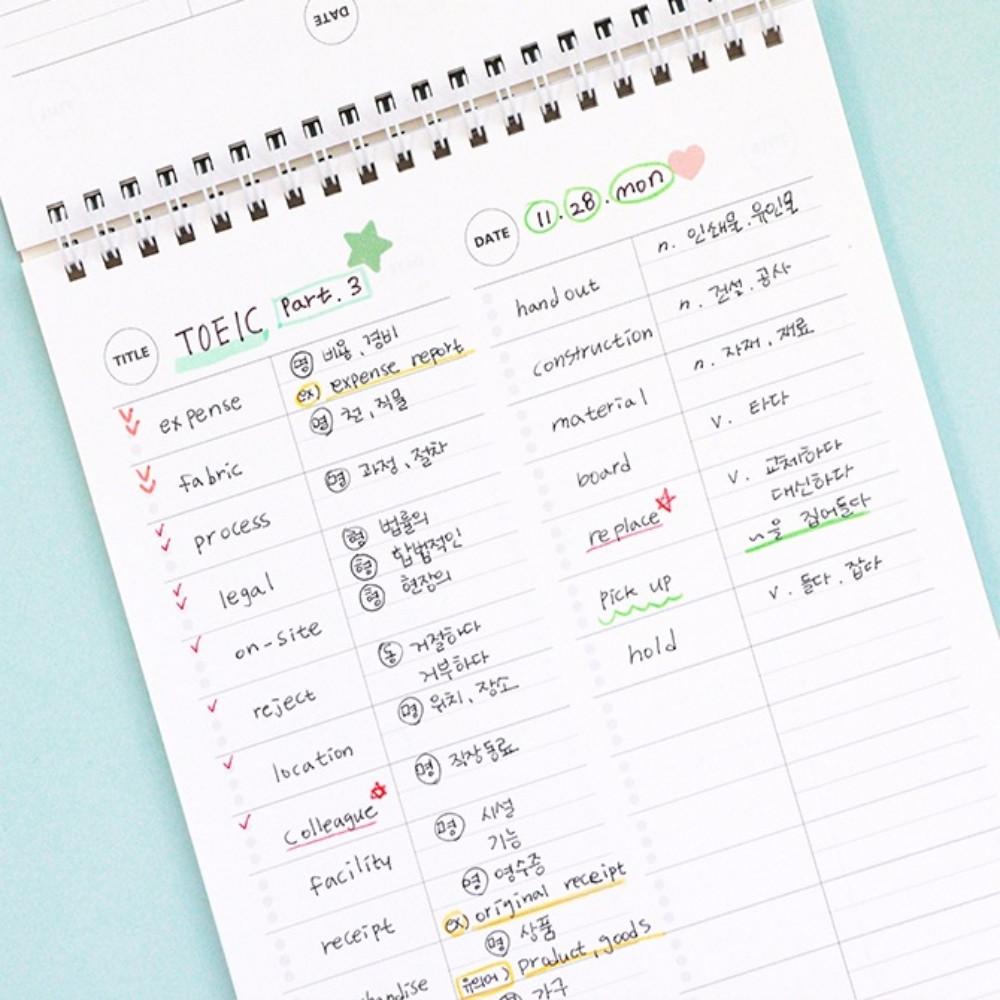 DATE
TITLE
TOEIC Part. 3
expense
명 비용, 경비
ex) expense report
fabric
명 천, 직물
process
명 과정, 절차
legal
형 법률의
형 합법적인
on-site
형 현장의
reject
동 거절하다
거부하다
location
명 위치, 장소
colleague
명 직장동료
facility
명 시설
기능
receipt
명 영수증
ex) original receipt
명 상품
유의어) product, goods
명 가구
DATE
11. 28. mon
hand out
n. 인쇄물. 유인물
construction
n. 건설. 공사
material
n. 자재, 재료
board
v. 타다
replace
v. 교체하다
대신하다
pick up
~을 집어들다
hold
v. 들다. 잡다